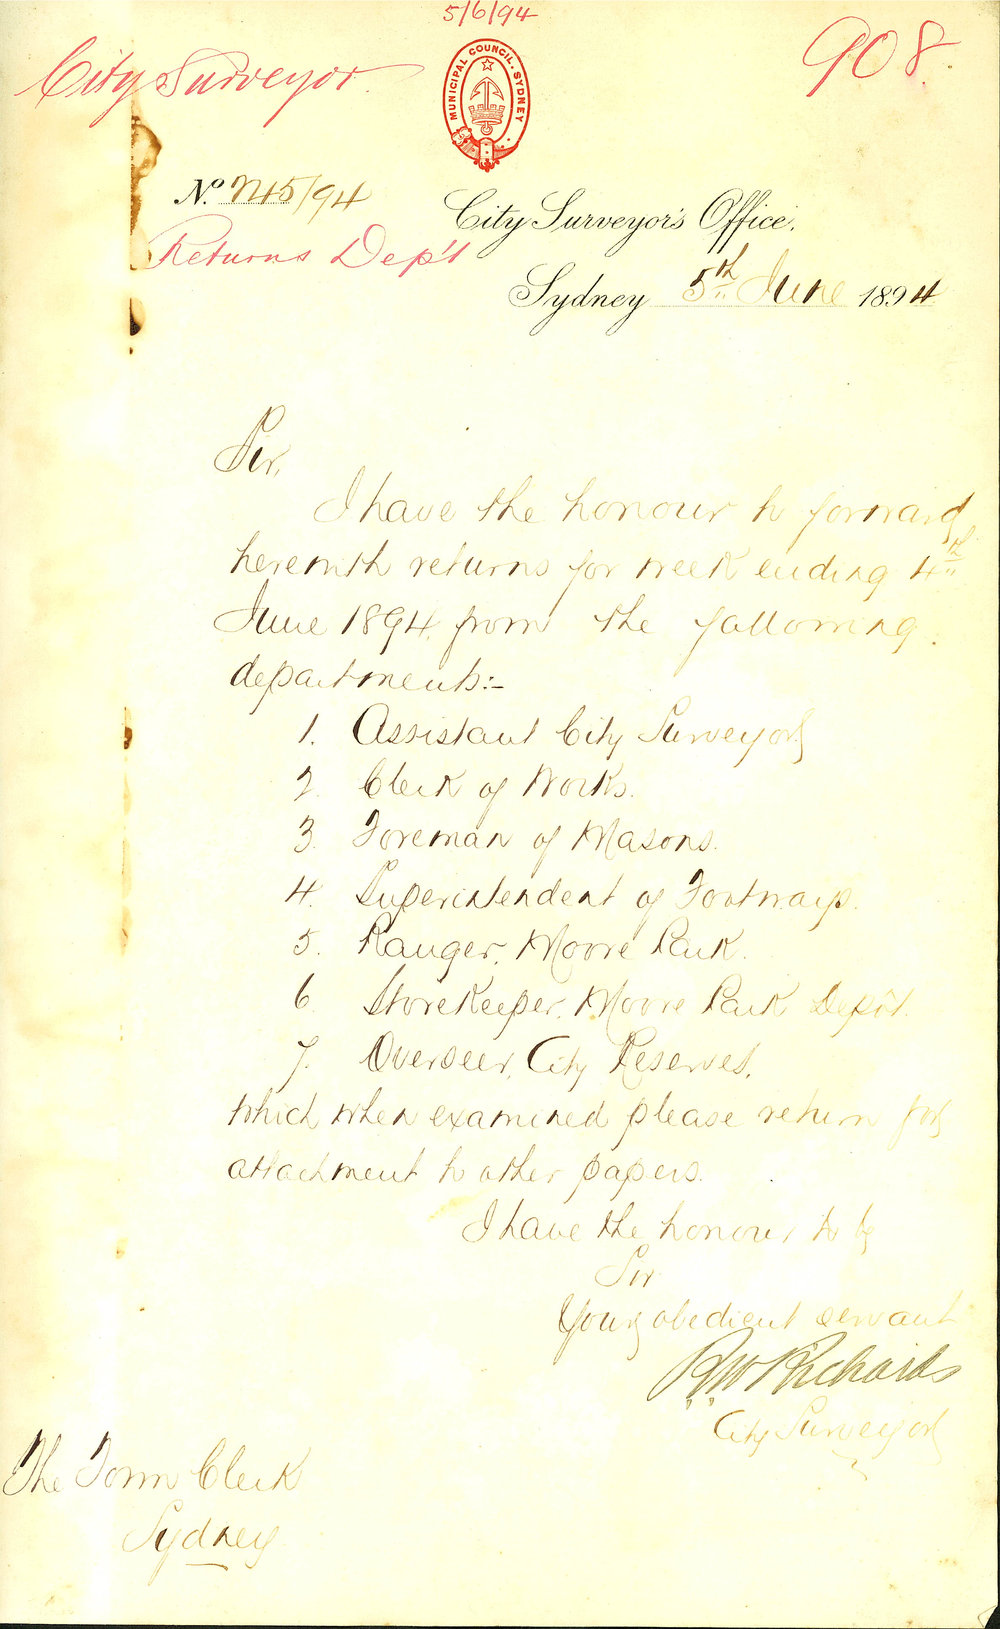 5/6/94
City Surveyor
908
MUNICIPAL COUNCIL. SYDNEY
No. 745/94
City Surveyor's Office,
Returns Dep't
Sydney 5th June 1894
Sir,
I have the honour to forward
herewith returns for week ending 4th
June 1894, from the following
departments:-
1. Assistant City Surveyor
2. Clerk of Works.
3. Foreman of Masons.
4. Superintendent of Footways.
5. Ranger, Moore Park.
6. Storekeeper, Moore Park Depôt.
7. Overseer, City Reserves,
which when examined please return for
attachment to other papers.
I have the honour to be
Sir
Your obedient servant
RW Richards
City Surveyor
The Town Clerk
Sydney